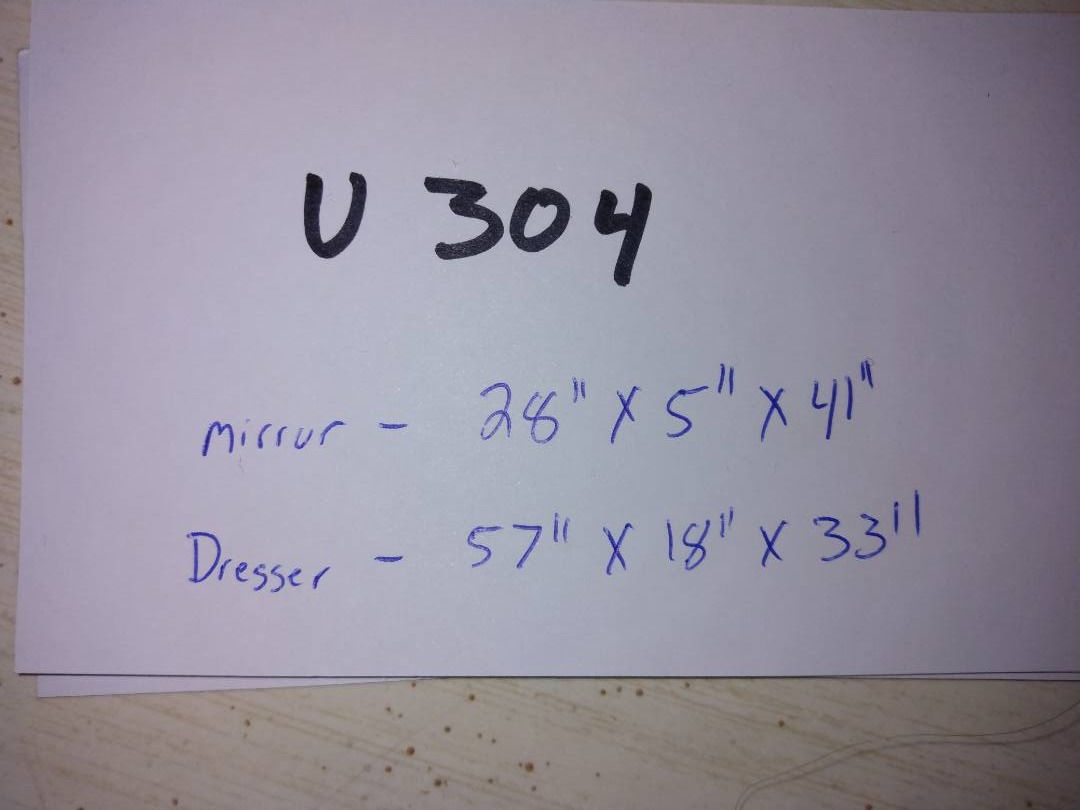 U 304
mirrur - 28" X 5" X 41"
Dresser - 57" X 18" X 33"